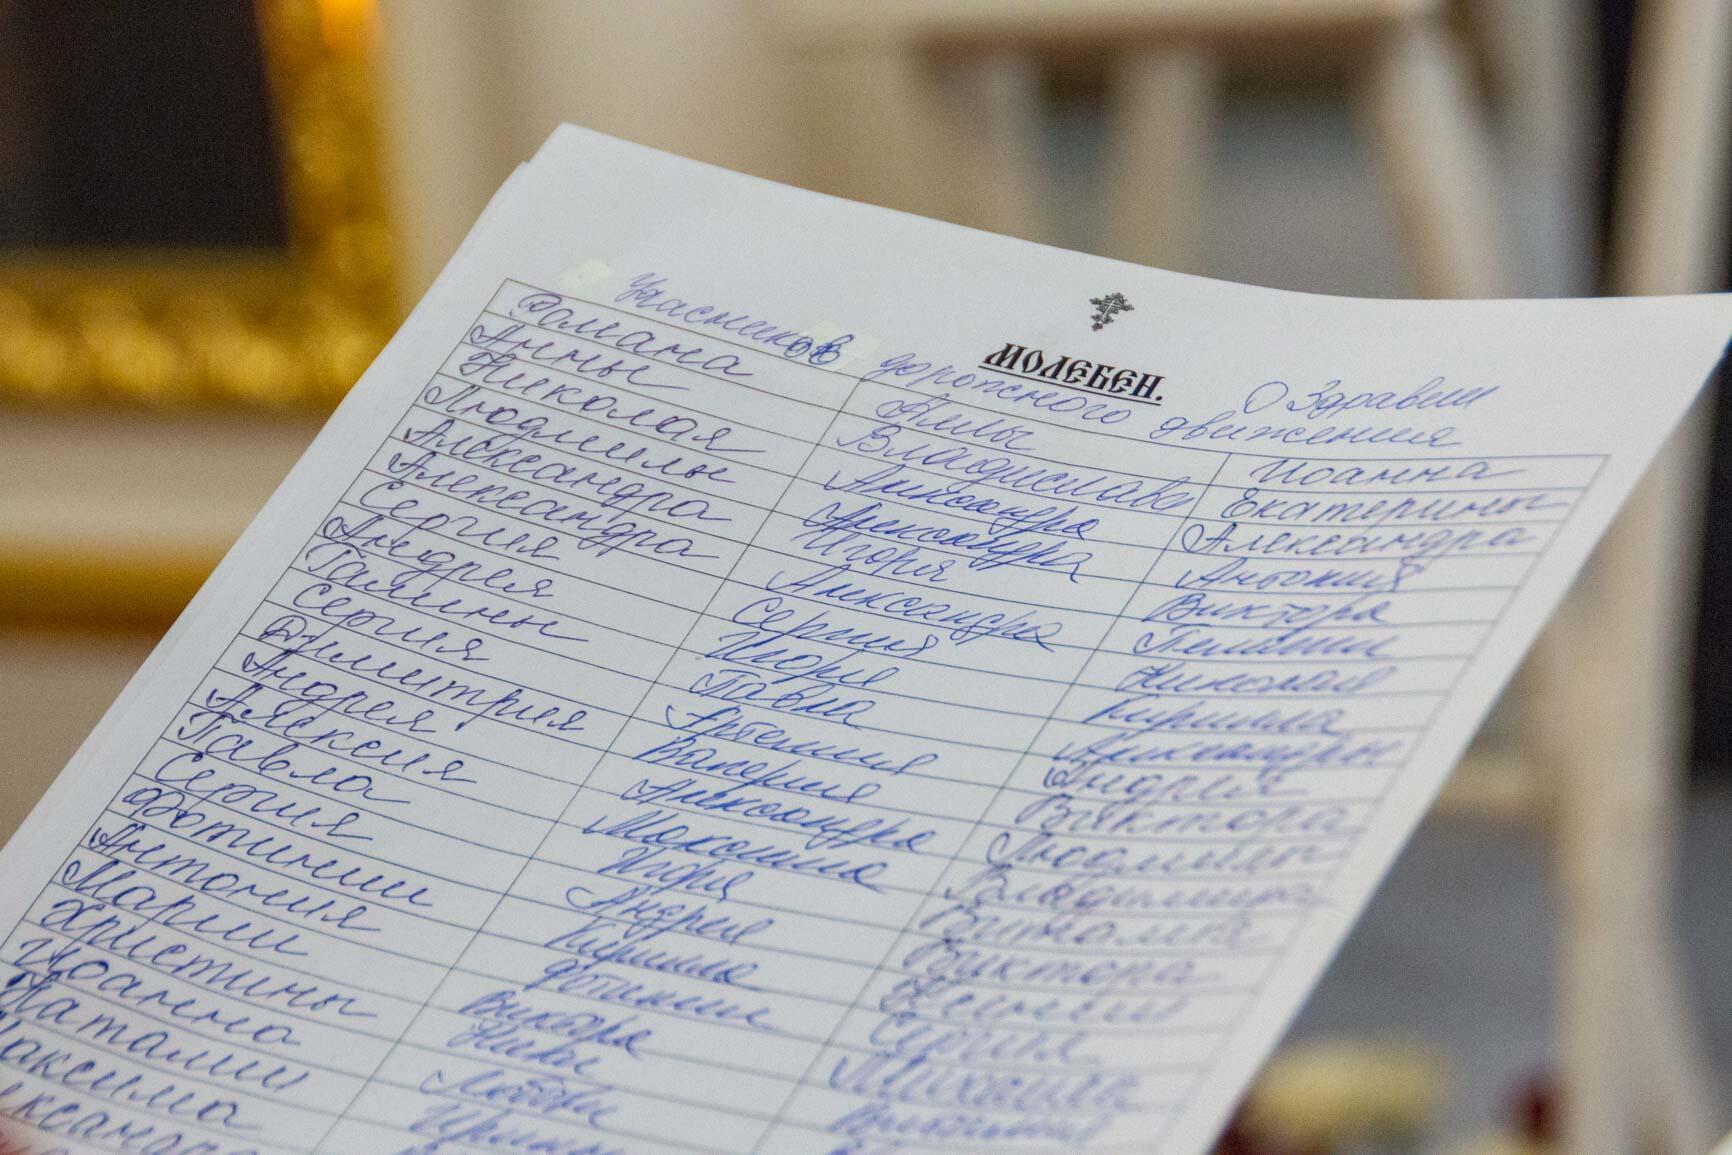 МОЛЕБЕН.
О Здравии
Участников дорожного движения
Романа
Анны
Николая
Людмилы
Александра
Александра
Сергия
Андрея
Галины
Сергия
Димитрия
Андрея
Алексия
Павла
Сергия
Фотинии
Антония
Марии
Христины
Иоанна
Наталии
Максима
Аллы
Владислава
Александра
Александра
Игоря
Александра
Сергия
Игоря
Павла
Артемия
Валерия
Александра
Максима
Игоря
Андрея
Кирилла
Фотинии
Виктора
Нины
Любови
Ирины
Иоанна
Екатерины
Александра
Антония
Виктора
Николая
Кирилла
Александры
Андрея
Виктора
Людмилы
Владимира
Виталия
Виктора
Сергия
Михаила